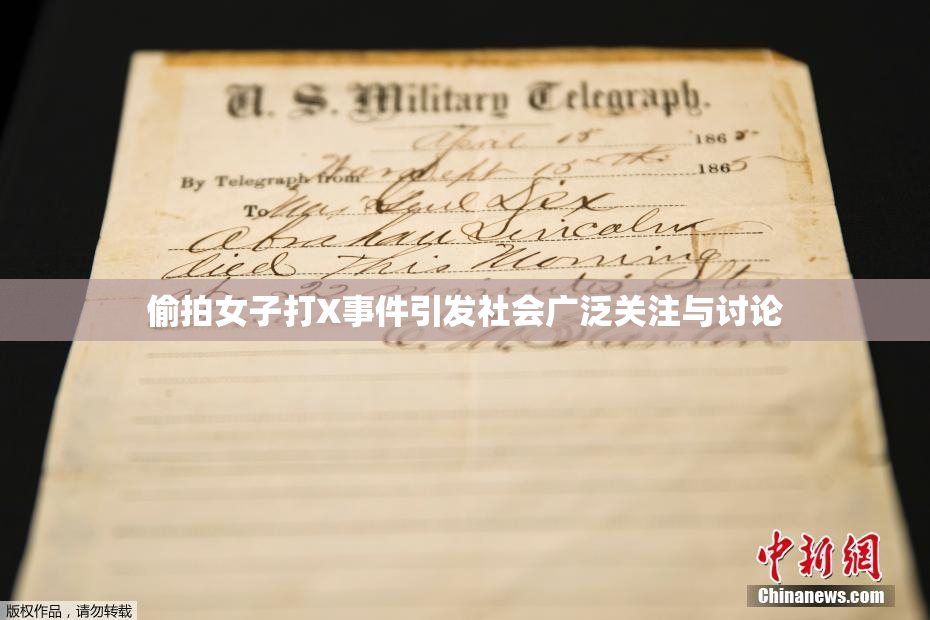 U. S. Military Telegraph.
April 15 1865
By Telegraph from War Dept 15th 1865
To Maj Genl Dix
Abraham Lincoln
died This Morning
at 22 minutes after
偷拍女子打X事件引发社会广泛关注与讨论
E. M. Stanton
中新網
Chinanews.com
版权作品，请勿转载